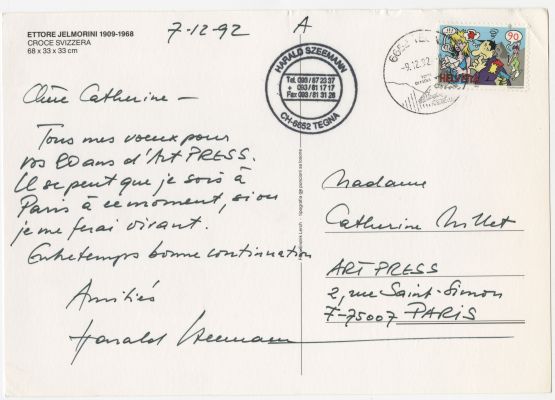 ETTORE JELMORINI 1909-1968
CROCE SVIZZERA
68 x 33 x 33 cm
7-12-92
A
HARALD SZEEMANN
Tel. 093/87 23 37
+ 093/81 17 17
Fax 093/81 31 28
CH-6652 TEGNA
6652 TE
-9.12.92
90
HELVETIA
Chère Catherine –
Tous mes voeux pour
vos 20 ans d'Art PRESS.
Il se peut que je sois à
Paris à ce moment, sinon
je me ferai vivant.
Entretemps bonne continuation
Amitiés
Harald Szeemann
Madame
Catherine Millet
ART PRESS
2, rue Saint-Simon
F-75007 PARIS